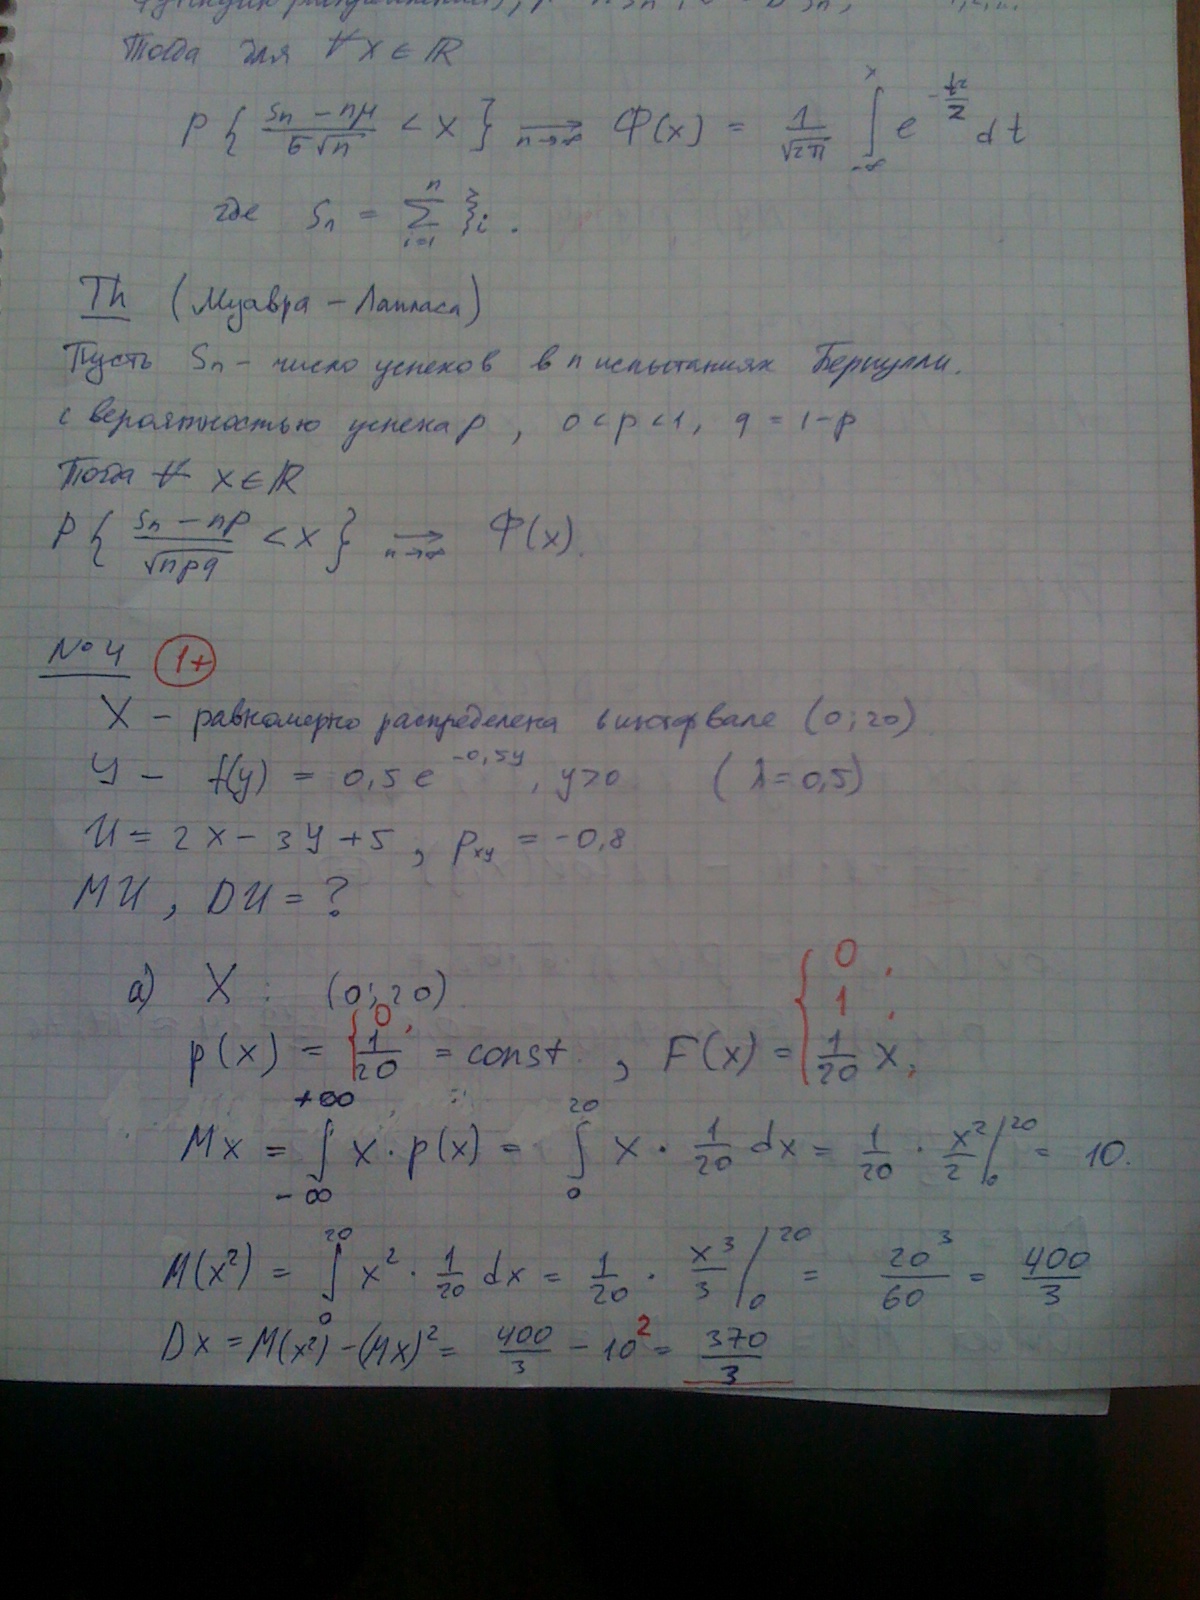 Тогда для ∀ x ∈ ℝ
P { (Sn − nμ) / (σ√n) < x } ⟶ n→∞ Φ(x) = 1/√2π ∫_{-∞}^{x} e^{-t²/2} dt
где Sn = ∑_{i=1}^{n} ξi .
Th (Муавра – Лапласа)
Пусть Sn – число успехов в n испытаниях Бернулли.
с вероятностью успеха p , 0 < p < 1, q = 1-p
Тогда ∀ x ∈ ℝ
P { (Sn − np) / √npq < x } ⟶ n→∞ Φ(x).
№ 4 1+
X – равномерно распределена в интервале (0; 20)
Y – f(y) = 0,5 e^{-0,5y} , y>0 ( λ = 0,5)
U = 2X – 3Y + 5 , ρxy = -0,8
MU , DU = ?
а) X : (0; 20)
p(x) = { 0, 1/20 = const. , F(x) = { 0 , 1 , 1/20 x,
Mx = ∫_{-∞}^{+∞} x · p(x) = ∫_{0}^{20} x · 1/20 dx = 1/20 · x²/2 |_{0}^{20} = 10.
M(x²) = ∫_{0}^{20} x² · 1/20 dx = 1/20 · x³/3 |_{0}^{20} = 20³/60 = 400/3
Dx = M(x²) – (Mx)² = 400/3 – 10² = 370/3